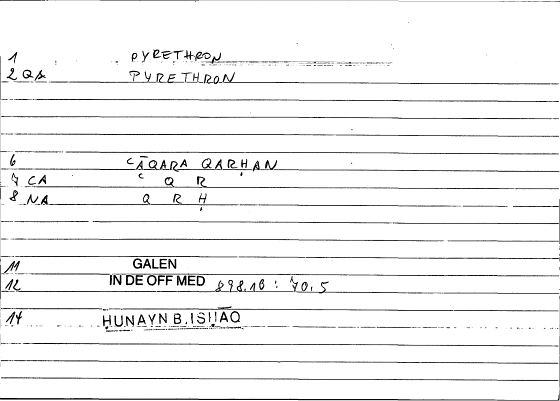 1 PYRETHRON
2 QS PYRETHRON
6 ʿĀQARA QARḤAN
7 CA ʿ Q R
8 NA Q R Ḥ
11 GALEN
12 IN DE OFF MED 898.16 : 70.5
14 ḤUNAYN B. ISḤĀQ